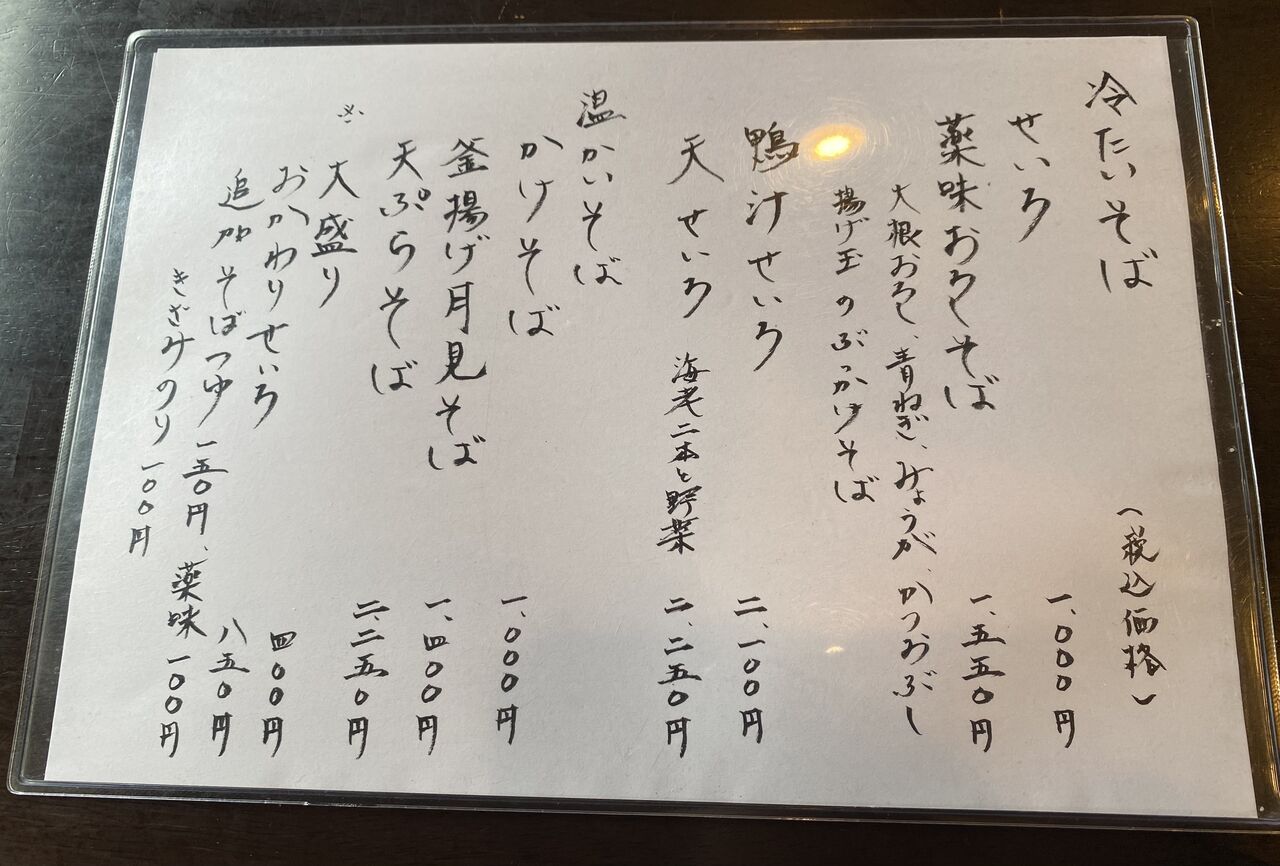 冷たいそば (税込価格)
せいろ 一、〇〇〇円
薬味おろしそば 一、五五〇円
大根おろし、青ねぎ、みょうが、かつおぶし
揚げ玉のぶっかけそば
鴨汁せいろ 二、一〇〇円
天せいろ 海老二本と野菜 二、二五〇円
温かいそば
かけそば 一、〇〇〇円
釜揚げ月見そば 一、四〇〇円
天ぷらそば 二、二五〇円
大盛り 四〇〇円
おかわりせいろ 八五〇円
追加 そばつゆ 一五〇円、薬味 一〇〇円
きざみのり 一〇〇円